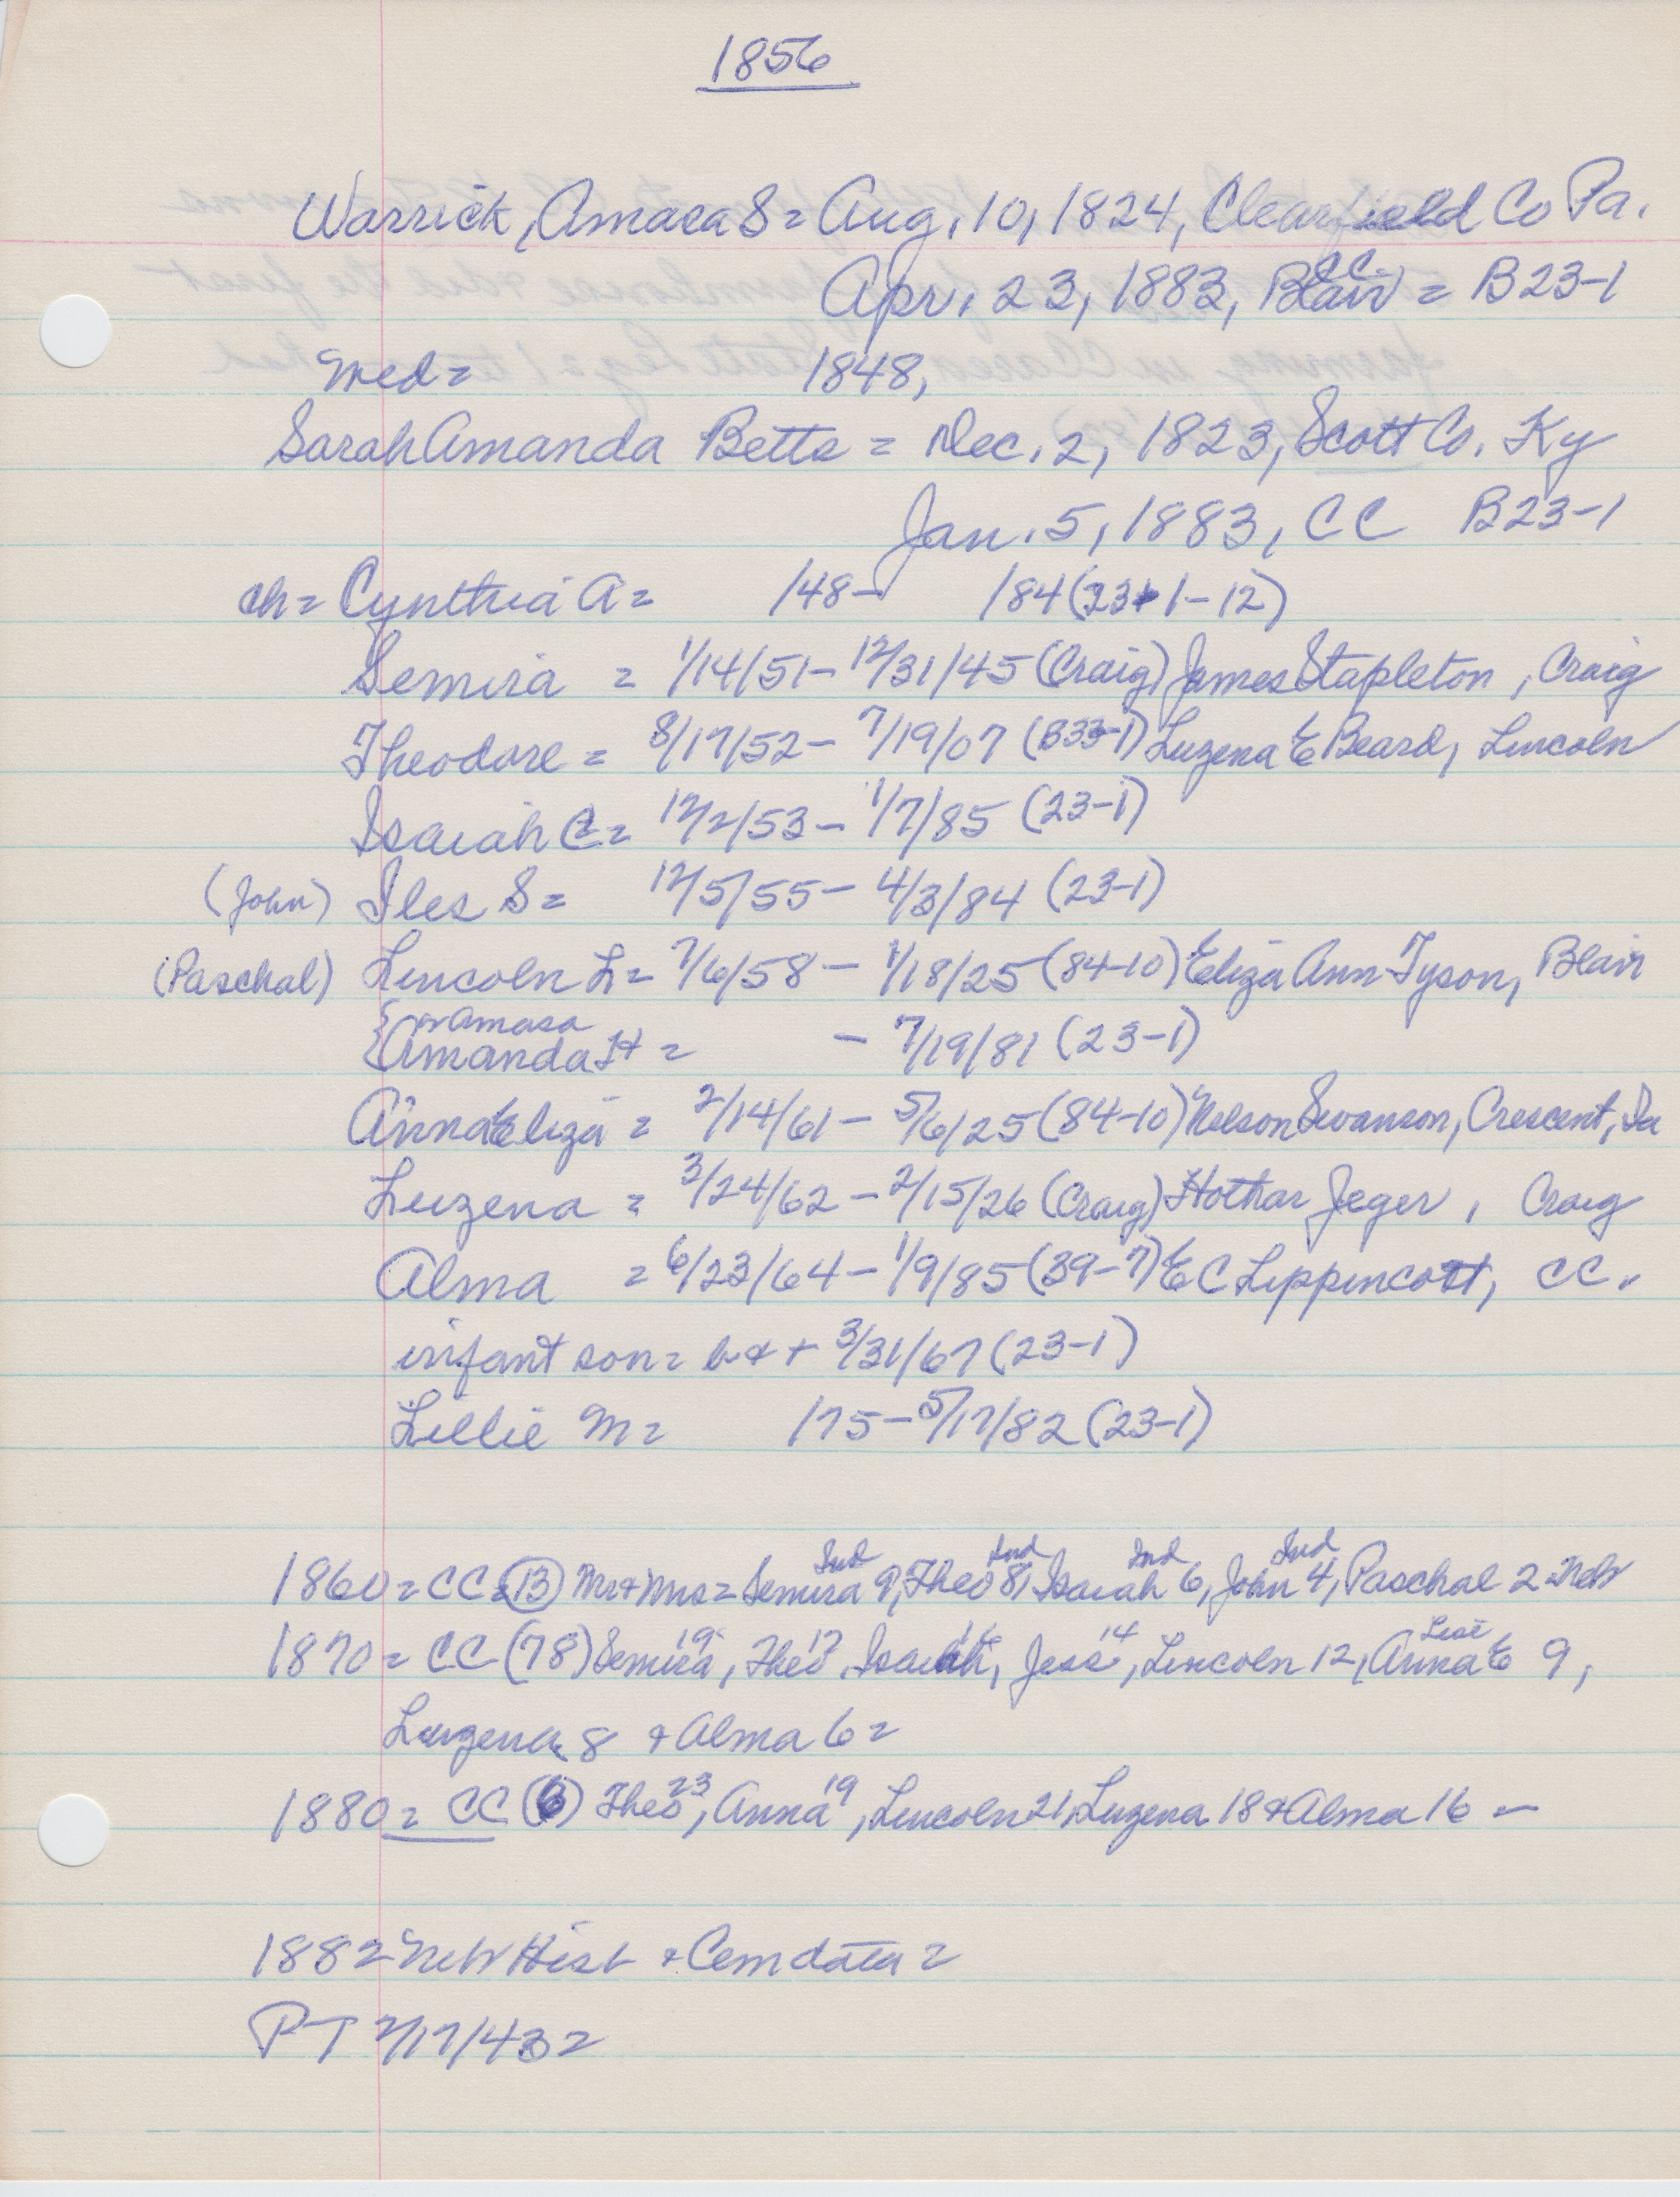 1856
Warrick, Amasa S = Aug. 10, 1824, Clearfield Co Pa.
Apr. 23, 1883, Blair CC = B23-1
Med = 1848,
Sarah Amanda Betts = Dec. 2, 1823, Scott Co. Ky
Jan. 5, 1883, CC B23-1
ch = Cynthia A = /48- /84 (23-1-12)
Semira = 1/14/51 - 12/31/45 (Craig) James Stapleton, Craig
Theodore = 8/17/52 - 7/19/07 (B33-1) Luzena E Beard, Lincoln
Isaiah C = 12/2/53 - 1/7/85 (23-1)
(John) Iles S = 12/5/55 - 4/3/84 (23-1)
(Paschal) Lincoln L = 7/6/58 - 1/18/25 (84-10) Eliza Ann Tyson, Blair
{ or Amasa
Amanda H = - 7/19/81 (23-1)
Anna Eliza = 2/14/61 - 5/6/25 (84-10) Nelson Swanson, Crescent, Ia
Luzena = 3/24/62 - 2/15/26 (Craig) Hothar Jeger, Craig
Alma = 6/23/64 - 1/9/85 (39-7) E C Lippincott, CC.
infant son = b & + 3/31/67 (23-1)
Lillie M = /75 - 5/17/82 (23-1)
1860 = CC = (13) Mr & Mrs = Semira 9 Ind, Theo 8 Ind, Isaiah 6 Ind, John 4 Ind, Paschal 2 Neb
1870 = CC (78) Semira 19, Theo 17, Isaiah 16, Jess 14, Lincoln 12, Anna E 9,
Luzena 8 & Alma 6 =
1880 = CC (6) Theo 23, Anna 19, Lincoln 21, Luzena 18 & Alma 16 -
1882 Neb Hist & Cem data =
PT 2/17/43 =